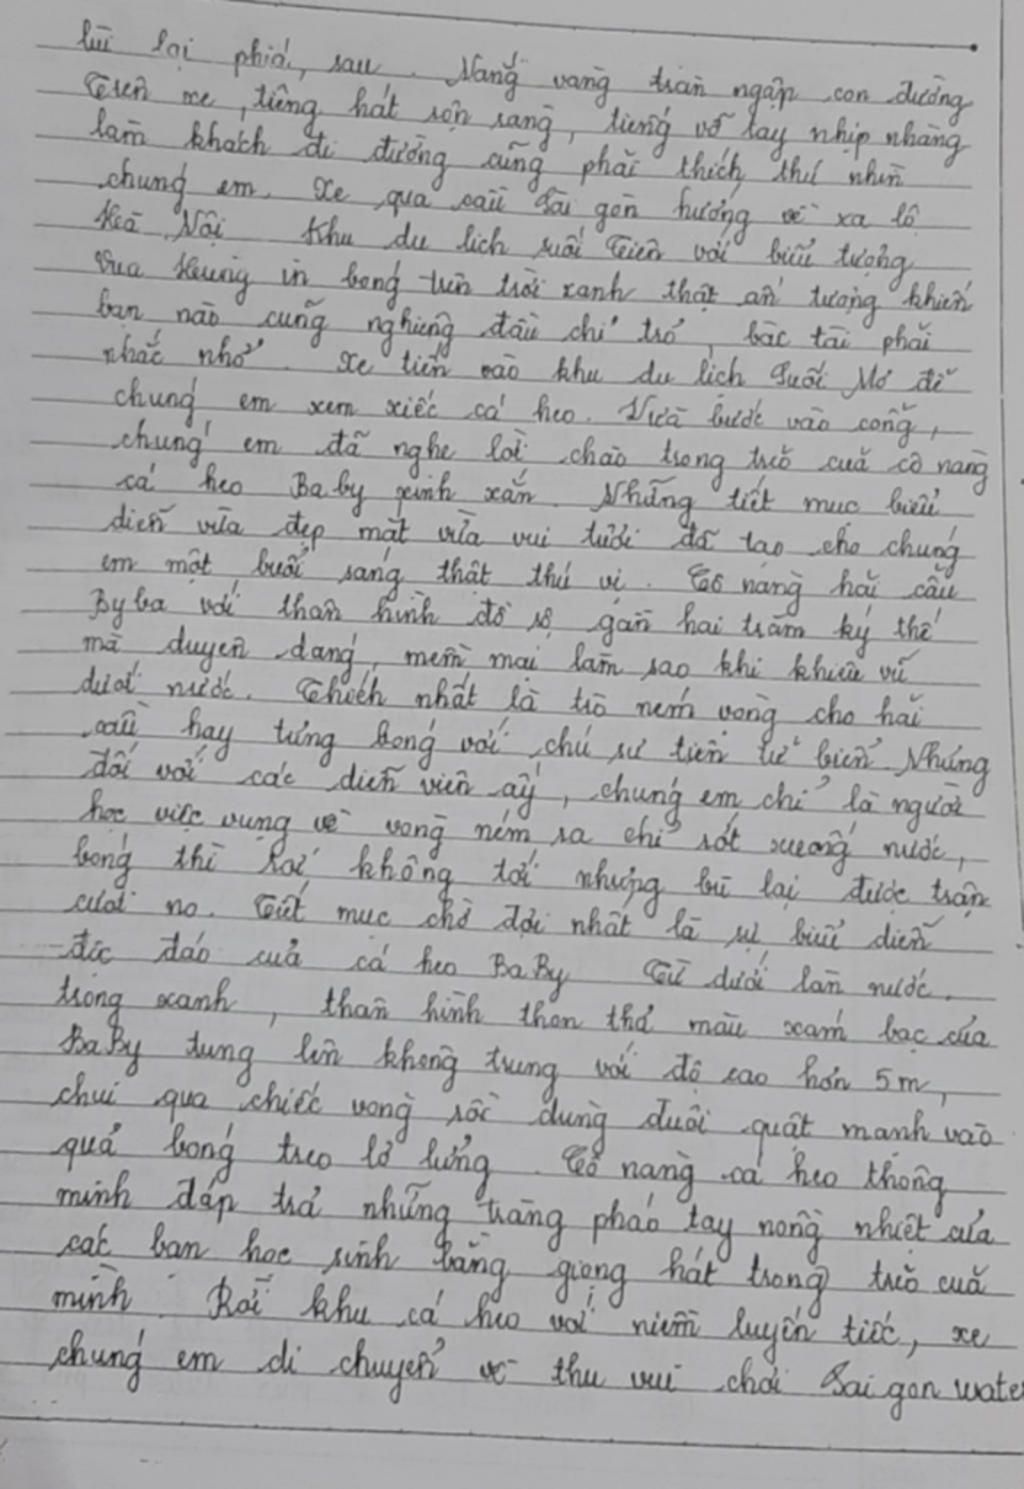 lùi lại phía sau. Nắng vàng tràn ngập con đường
Trên xe, tiếng hát rộn ràng, tiếng vỗ tay nhịp nhàng
làm khách đi đường cũng phải thích thú nhìn
chúng em. Xe qua cầu Sài gòn hướng về xa lộ
Hà Nội. Khu du lịch suối Tiên với biểu tượng
vua Hùng in bóng trên trời xanh thật ấn tượng khiến
bạn nào cũng nghiêng đầu chỉ trỏ, bác tài phải
nhắc nhở. Xe tiến vào khu du lịch Suối Mơ để
chúng em xem xiếc cá heo. Vừa bước vào cổng,
chúng em đã nghe lời chào trong trẻo của cô nàng
cá heo Ba by xinh xắn. Những tiết mục biểu
diễn vừa đẹp mắt vừa vui tươi đã tạo cho chúng
em một buổi sáng thật thú vị. Cô nàng hải cẩu
Byba với thân hình đồ sộ gần hai trăm ký thế
mà duyên dáng, mềm mại làm sao khi khiêu vũ
dưới nước. Thích nhất là trò ném vòng cho hải
cẩu hay tưng bóng với chú sư tiền tử biển. Nhưng
đối với các diễn viên ấy, chúng em chỉ là người
học việc vụng về vòng ném ra chỉ rớt xuống nước,
bóng thì rơi không tới nhưng bù lại được trận
cười no. Tiết mục chờ đợi nhất là sự biểu diễn
độc đáo của cá heo BaBy. Từ dưới làn nước
trong xanh, thân hình thon thả màu xám bạc của
BaBy tung lên không trung với độ cao hơn 5m,
chui qua chiếc vòng rồi dùng đuôi quật mạnh vào
quả bóng treo lơ lửng. Cô nàng cá heo thông
minh đáp trả những tràng pháo tay nồng nhiệt của
các bạn học sinh bằng giọng hát trong trẻo của
mình. Rời khu cá heo với niềm luyến tiếc, xe
chúng em di chuyển về thu vui chơi Sai gon wate